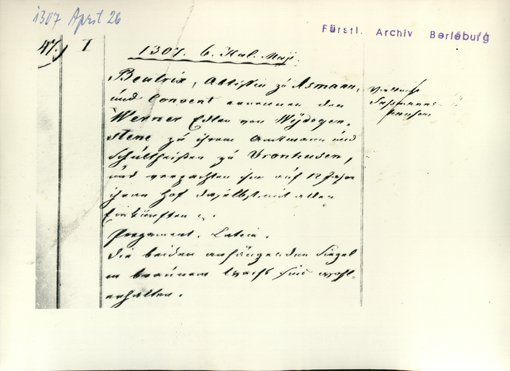 1307 April 26
Fürstl. Archiv Berleburg
47.) I
1307. 6. Kal. Maji.
Beatrix, Äbtissin zu Asmann,
und Convent ernennen den
Werner Edlen von Wydegen-
stene zu ihrem Amtmann und
Schultheißen zu Vronhusen,
und verpachten ihm auf 12 Jahre
ihren Hof daselbst mit allen
Einkünften
Pergament. Latein.
Die beiden anhängenden Siegel
in braunem Wachs sind wohl-
erhalten.